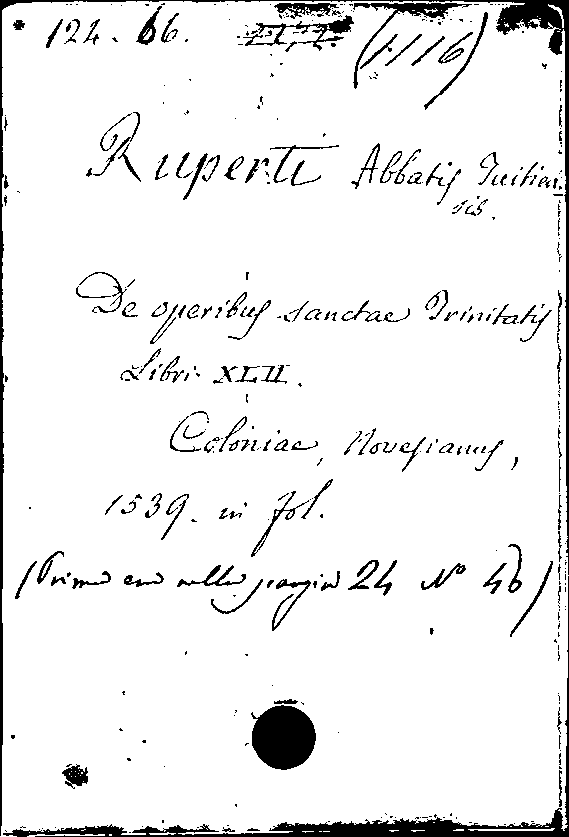 124. 66. (1116)
Ruperti Abbatis Tuitien-
sis.
De operibus sanctae Trinitatis
Libri XLII.
Coloniae, Novesianus,
1539. in fol.
(Prima era nella pagina 24 N° 46)